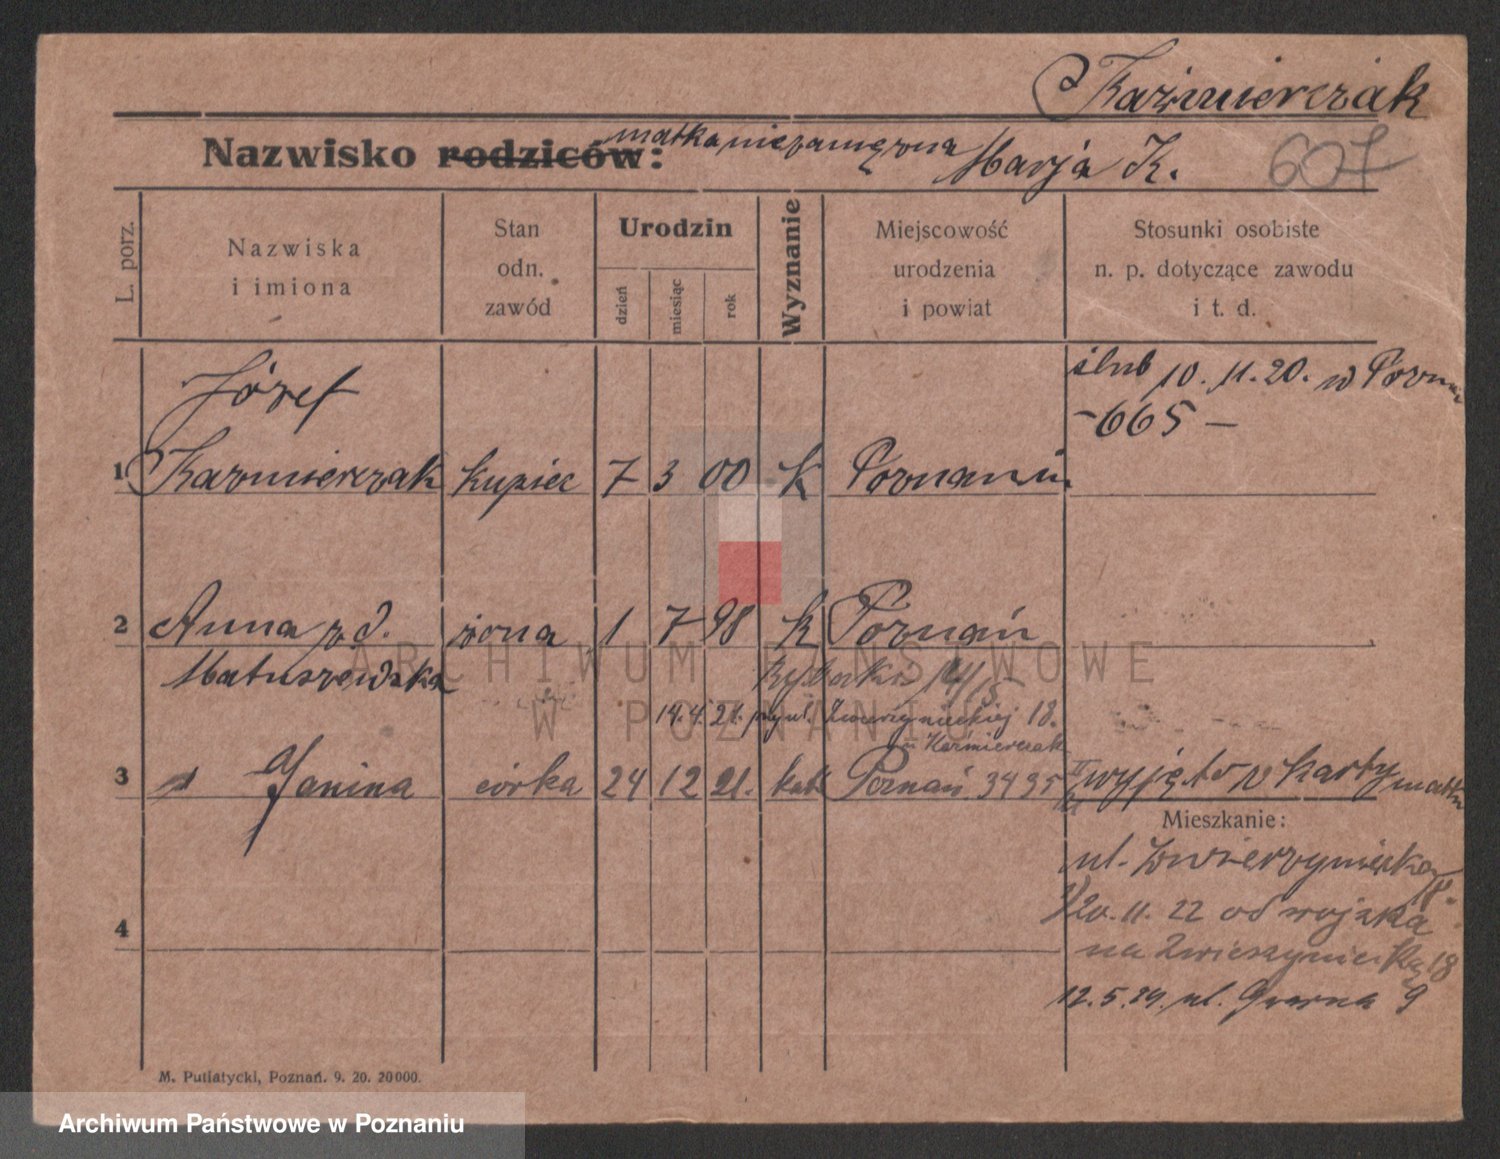 Kaźmierczak
Nazwisko rodziców: matka niezamężna Marja K. 607
L. porz.
Nazwiska
i imiona
Stan
odn.
zawód
Urodzin
dzień
miesiąc
rok
Wyznanie
Miejscowość
urodzenia
i powiat
Stosunki osobiste
n. p. dotyczące zawodu
i t. d.
Józef
ślub 10.11.20. w Pozna
-665-
1 Kazmierczak kupiec 7 3 00 k Poznaniu.
2 Anna zd. żona 1 7 98 k Poznań
Matuszewska
Rybaki 14/15
14.4.21. przy ul. Zwierzynieckiej 18.
u Kaźmierczak
3 Janina córka 24 12 21. kat Poznań 3495 wyjęto z karty matki
Mieszkanie:
ul. Zwierzyniecka
18.
20.11.22 od wojska
na Zwieszyniecką 18
4
12.5.24. ul. Gwarna 9
M. Putiatycki, Poznań. 9. 20. 20000.
ARCHIWUM PAŃSTWOWE
W POZNANIU
Archiwum Państwowe w Poznaniu